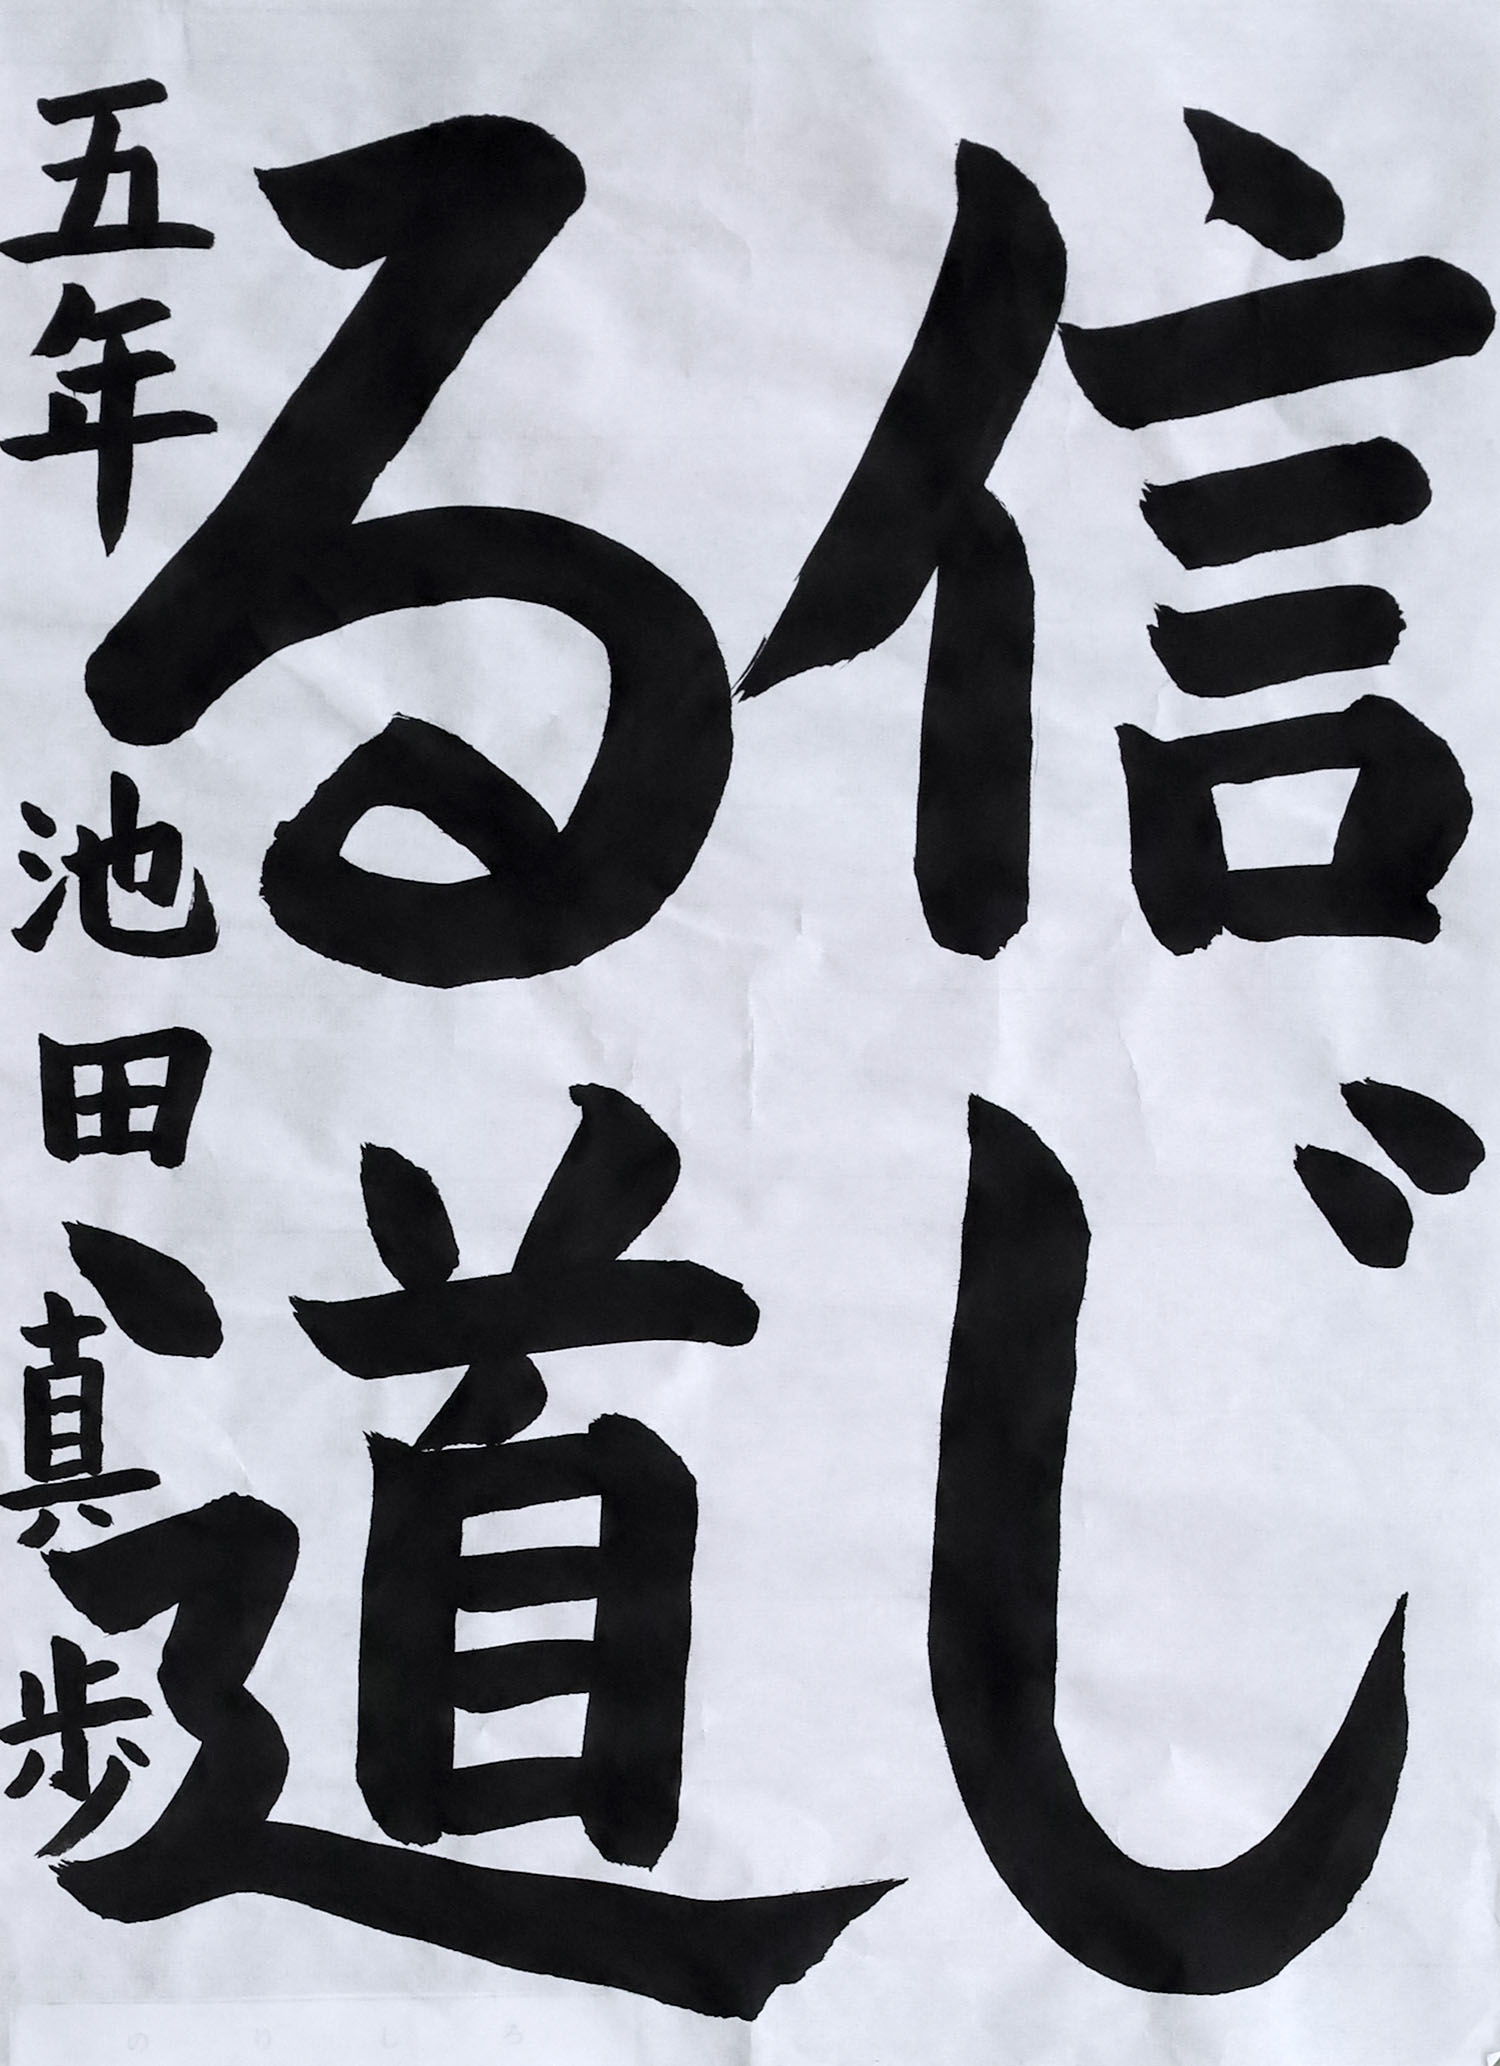 信じ
る道
五年 池田真歩
のりしろ